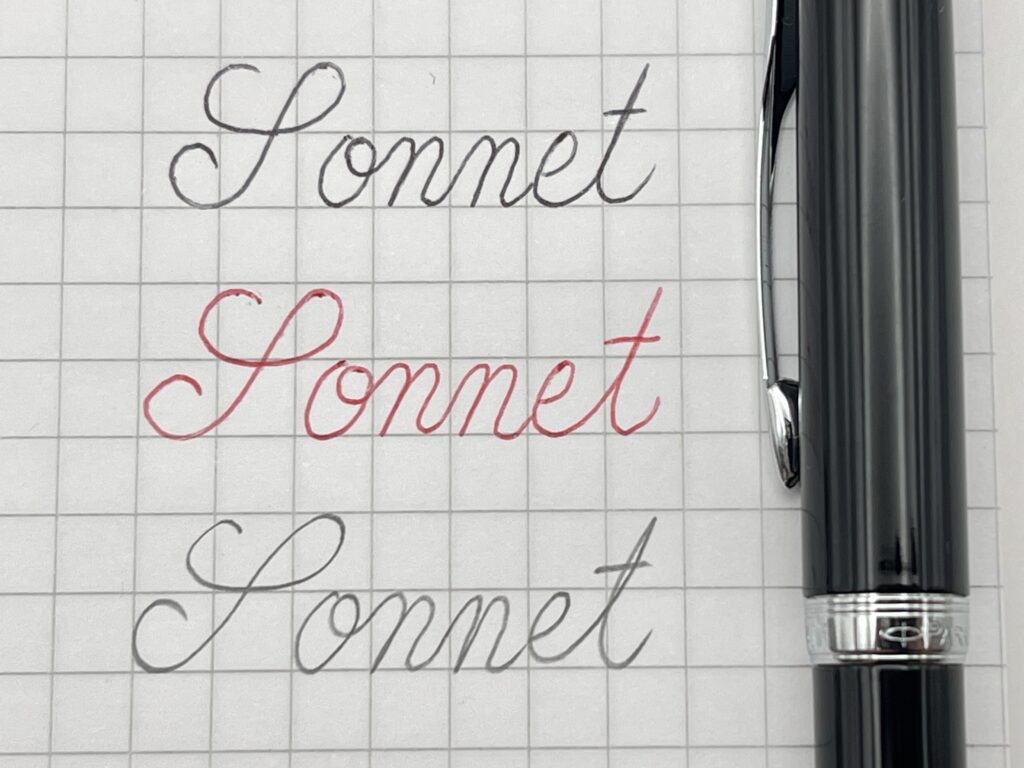 Sonnet
Sonnet
Sonnet